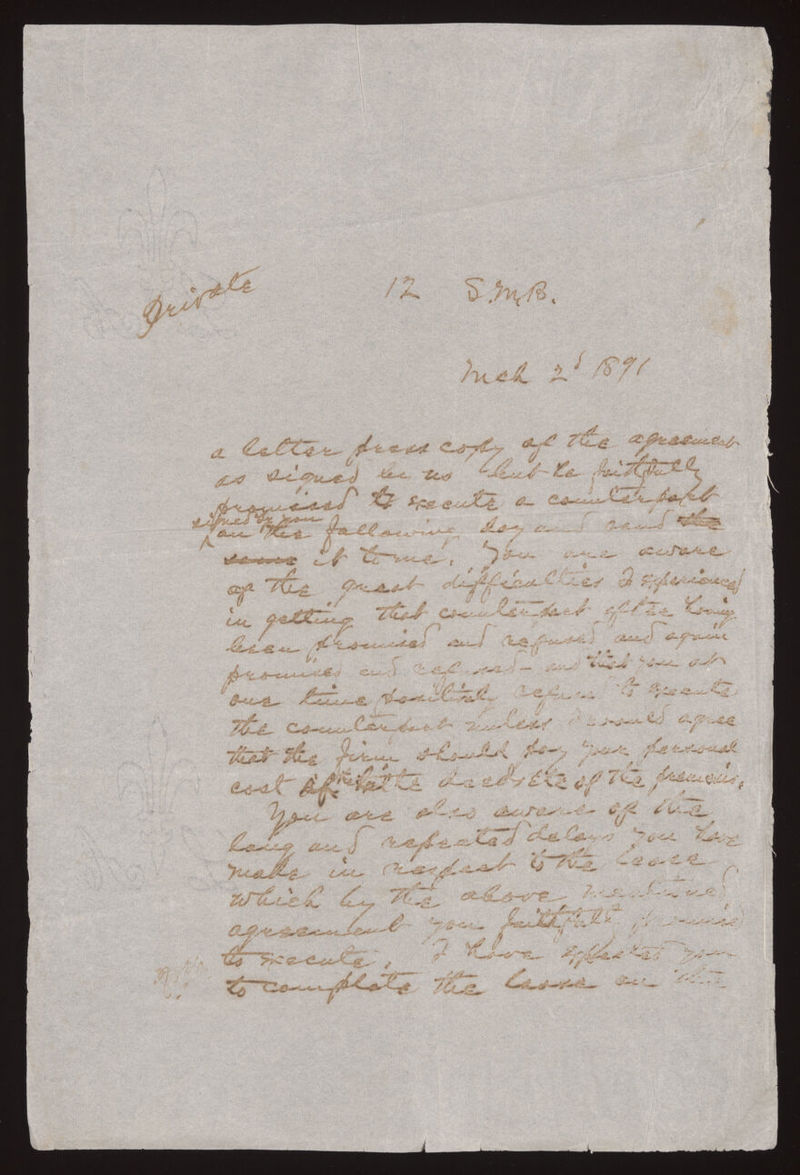 Private
12 S.M.B.
Mch 2d 1891
a letter press copy of the agreement
as signed by us but he faithfully
promised to execute a counterpart
signed by you
on the following day and send the
same it to me. You are aware
of the great difficulties I experienced
in getting that counterpart after having
been promised and refused and again
promised and refused and that you at
one time positively refused to execute
the counterpart unless I would agree
that the firm should pay your personal
cost of the deeds etc of the premises.
You are also aware of the
long and repeated delays you have
made in respect to the lease
which by the above mentioned
agreement you faithfully promised
to execute. I have expected you
to complete the lease on the